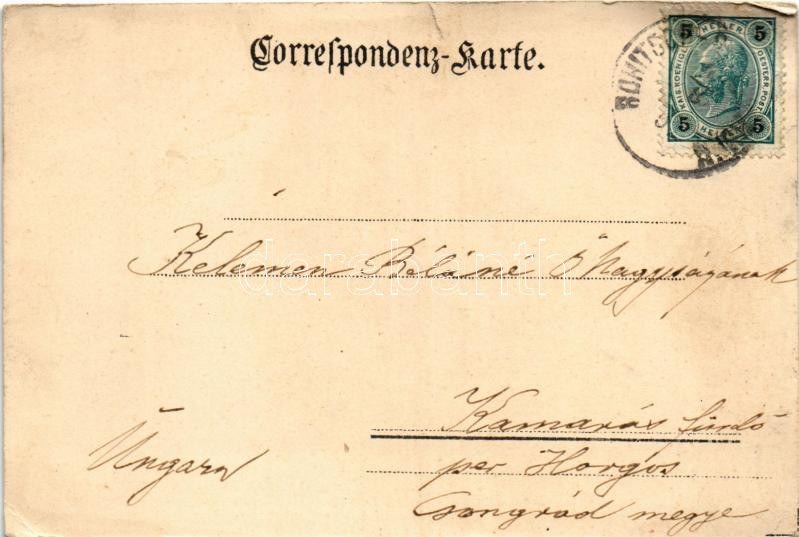 Correspondenz-Karte.
5 HELLER 5
KAIS. KOENIGL. OESTERR. POST.
5 HELLER 5
ROHITSCH
Kelemen Béláné Őnagyságának
darabanth
Kamarás fürdő
Ungarn
per Horgos
Csongrád megye